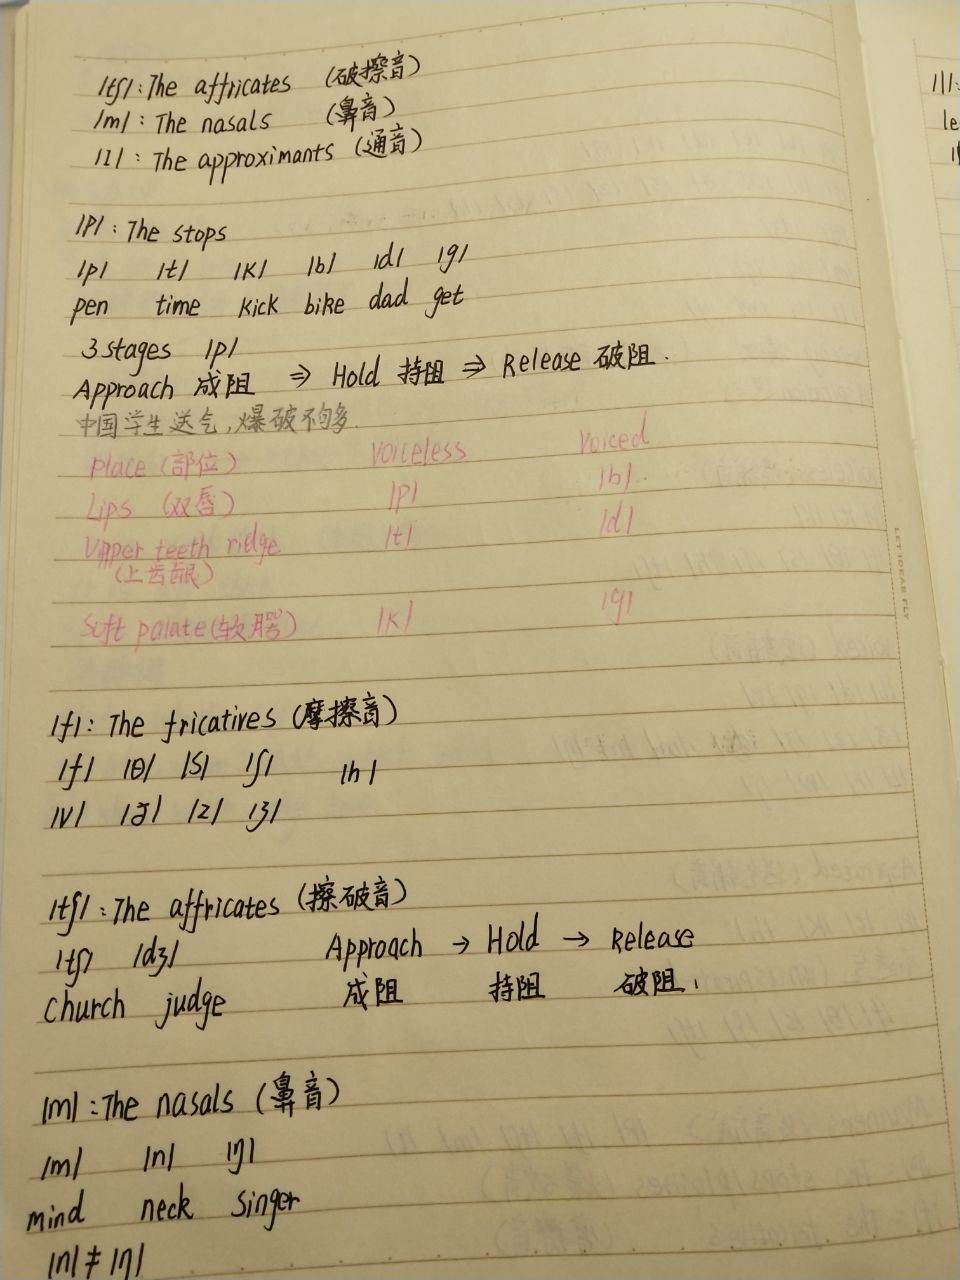 /tʃ/: The affricates (破擦音)
/m/: The nasals (鼻音)
/ɪ/: The approximants (通音)
/p/: The stops
/p/ /t/ /k/ /b/ /d/ /g/
pen time kick bike dad get
3 stages /p/
Approach 成阻 ⇒ Hold 持阻 ⇒ Release 破阻.
中国学生送气,爆破不够多.
Place (部位) voiceless voiced
Lips (双唇) /p/ /b/
Upper teeth ridge /t/ /d/
(上齿龈)
Soft palate (软腭) /k/ /g/
/f/: The fricatives (摩擦音)
/f/ /θ/ /s/ /ʃ/ /h/
/v/ /ð/ /z/ /ʒ/
/tʃ/: The affricates (擦破音)
/tʃ/ /dʒ/ Approach → Hold → Release
church judge 成阻 持阻 破阻.
/m/: The nasals (鼻音)
/m/ /n/ /ŋ/
mind neck singer
/n/ ≠ /ŋ/
/l/:
le
LET IDEAS FLY